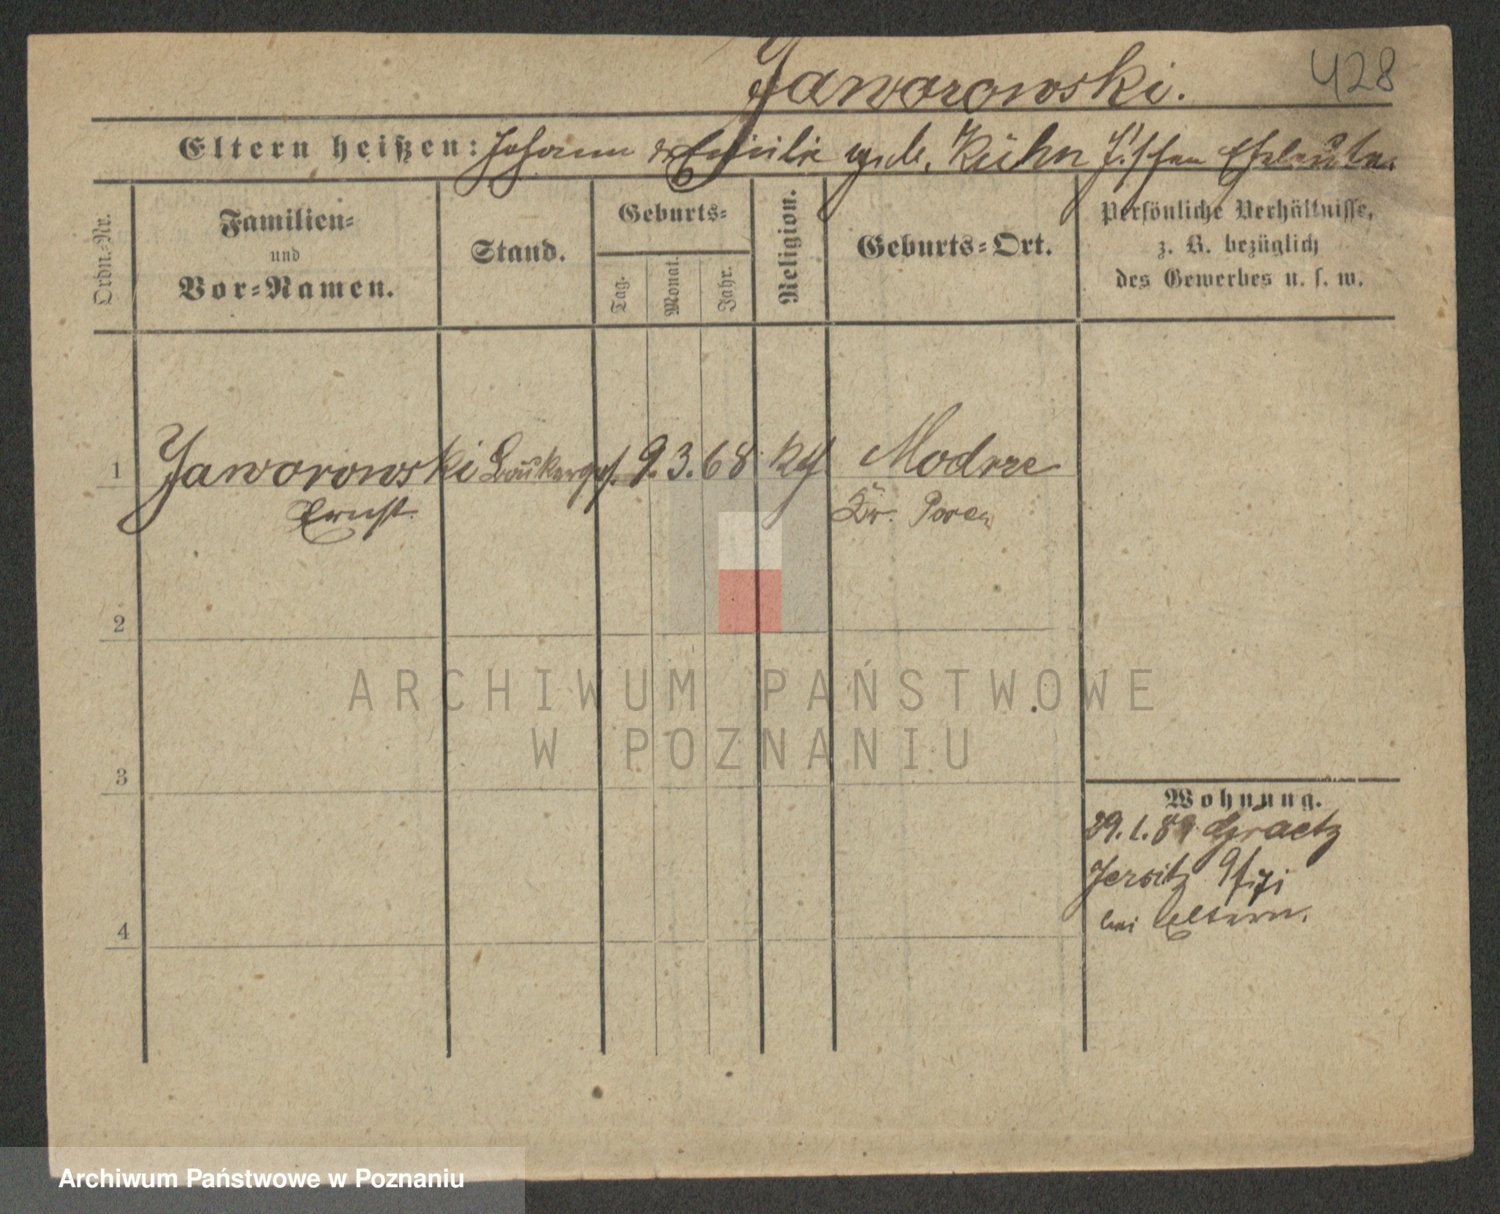 Jaworowski.
428
Eltern heißen: Johann & Emilie geb. Kühn J.'schen Eheleute.
Ordn.-Nr.
Familien-
und
Vor-Namen.
Stand.
Geburts-
Tag.
Monat.
Jahr.
Religion.
Geburts-Ort.
Persönliche Verhältnisse,
z. B. bezüglich
des Gewerbes u. s. w.
1 Jaworowski 9. 3. 68 Modrze
Ernst. Kr. Posen
2
ARCHIWUM PAŃSTWOWE
W POZNANIU
3
Wohnung.
29. 1. 89 Graetz
Jersitz
bei Eltern.
4
Archiwum Państwowe w Poznaniu